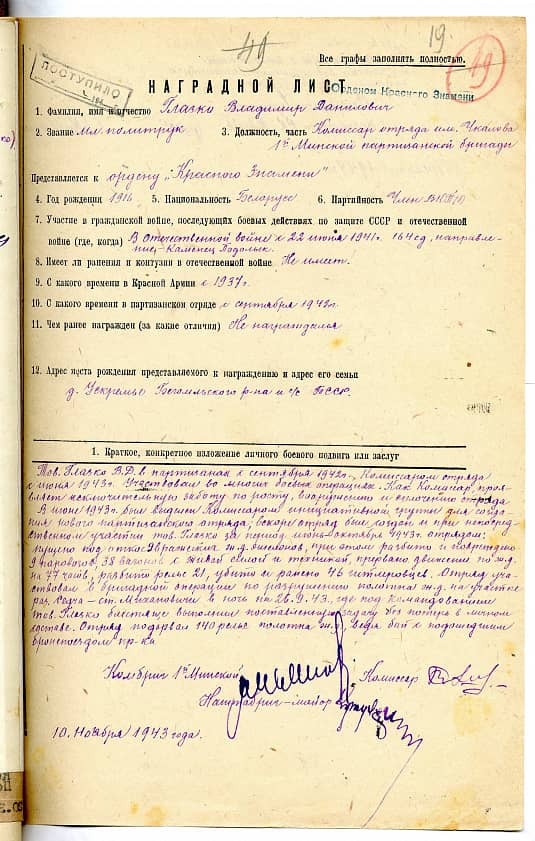 49
19.
49
Все графы заполнять полностью.
ПОСТУПИЛО
НАГРАДНОЙ ЛИСТ
Орденом Красного Знамени
1. Фамилия, имя и отчество Глазко Владимир Данилович
2. Звание мл политрук 3. Должность, часть Комиссар отряда им. Чкалова
1й Минской партизанской бригады
Представляется к ордену „Красного Знамени"
4. Год рождения 1916 5. Национальность Белорусс 6. Партийность Член ВКП(б)
7. Участие в гражданской войне, последующих боевых действиях по защите СССР и отечественной
войне (где, когда) В Отечественной войне с 22 июня 1941г. 164 сд, направле-
ние - Каменец Подольск.
8. Имеет ли ранения и контузии в отечественной войне Не имеет.
9. С какого времени в Красной Армии с 1937г.
10. С какого времени в партизанском отряде с сентября 1942г.
11. Чем ранее награжден (за какие отличия) Не награждался
12. Адрес места рождения представляемого к награждению и адрес его семьи
д. Ускремье Бегомльского р-на и с/с БССР.
1. Краткое, конкретное изложение личного боевого подвига или заслуг
Тов. Глазко В.Д. в партизанах с сентября 1942г., Комиссаром отряда
с июня 1943г. Участвовал во многих боевых операциях. Как Комиссар, прояв-
ляет исключительную работу по росту, вооружению и сплочению отряда
В июне 1943г. был выдвинут Комиссаром инициативной группы для созда-
ния нового партизанского отряда, вскоре отряд был создан и при непосред-
ственном участии тов. Глазко за период июнь-октябрь 1943г. отрядом:
пущено под откос 9 вражеских ж.д. эшелонов, при этом разбито и повреждено
9 паровозов, 38 вагонов с живой силой и техникой, прервано движение по ж.д.
на 77 часов, разбито рельс 21, убито и ранено 46 гитлеровцев. Отряд уча-
ствовал в бригадной операции по разрушению полотна ж.д. на участке
раз. Седча - ст. Михановичи в ночь на 26.9.43, где под командованием
тов. Глазко блестяще выполнил поставленную задачу без потерь в личном
составе. Отряд подорвал 140 рельс полотна ж.д. ведя бой с подошедшим
бронепоездом пр-ка
Комбриг 1й Минской Комиссар
Наштабриг - майор
10 Ноября 1943 года.